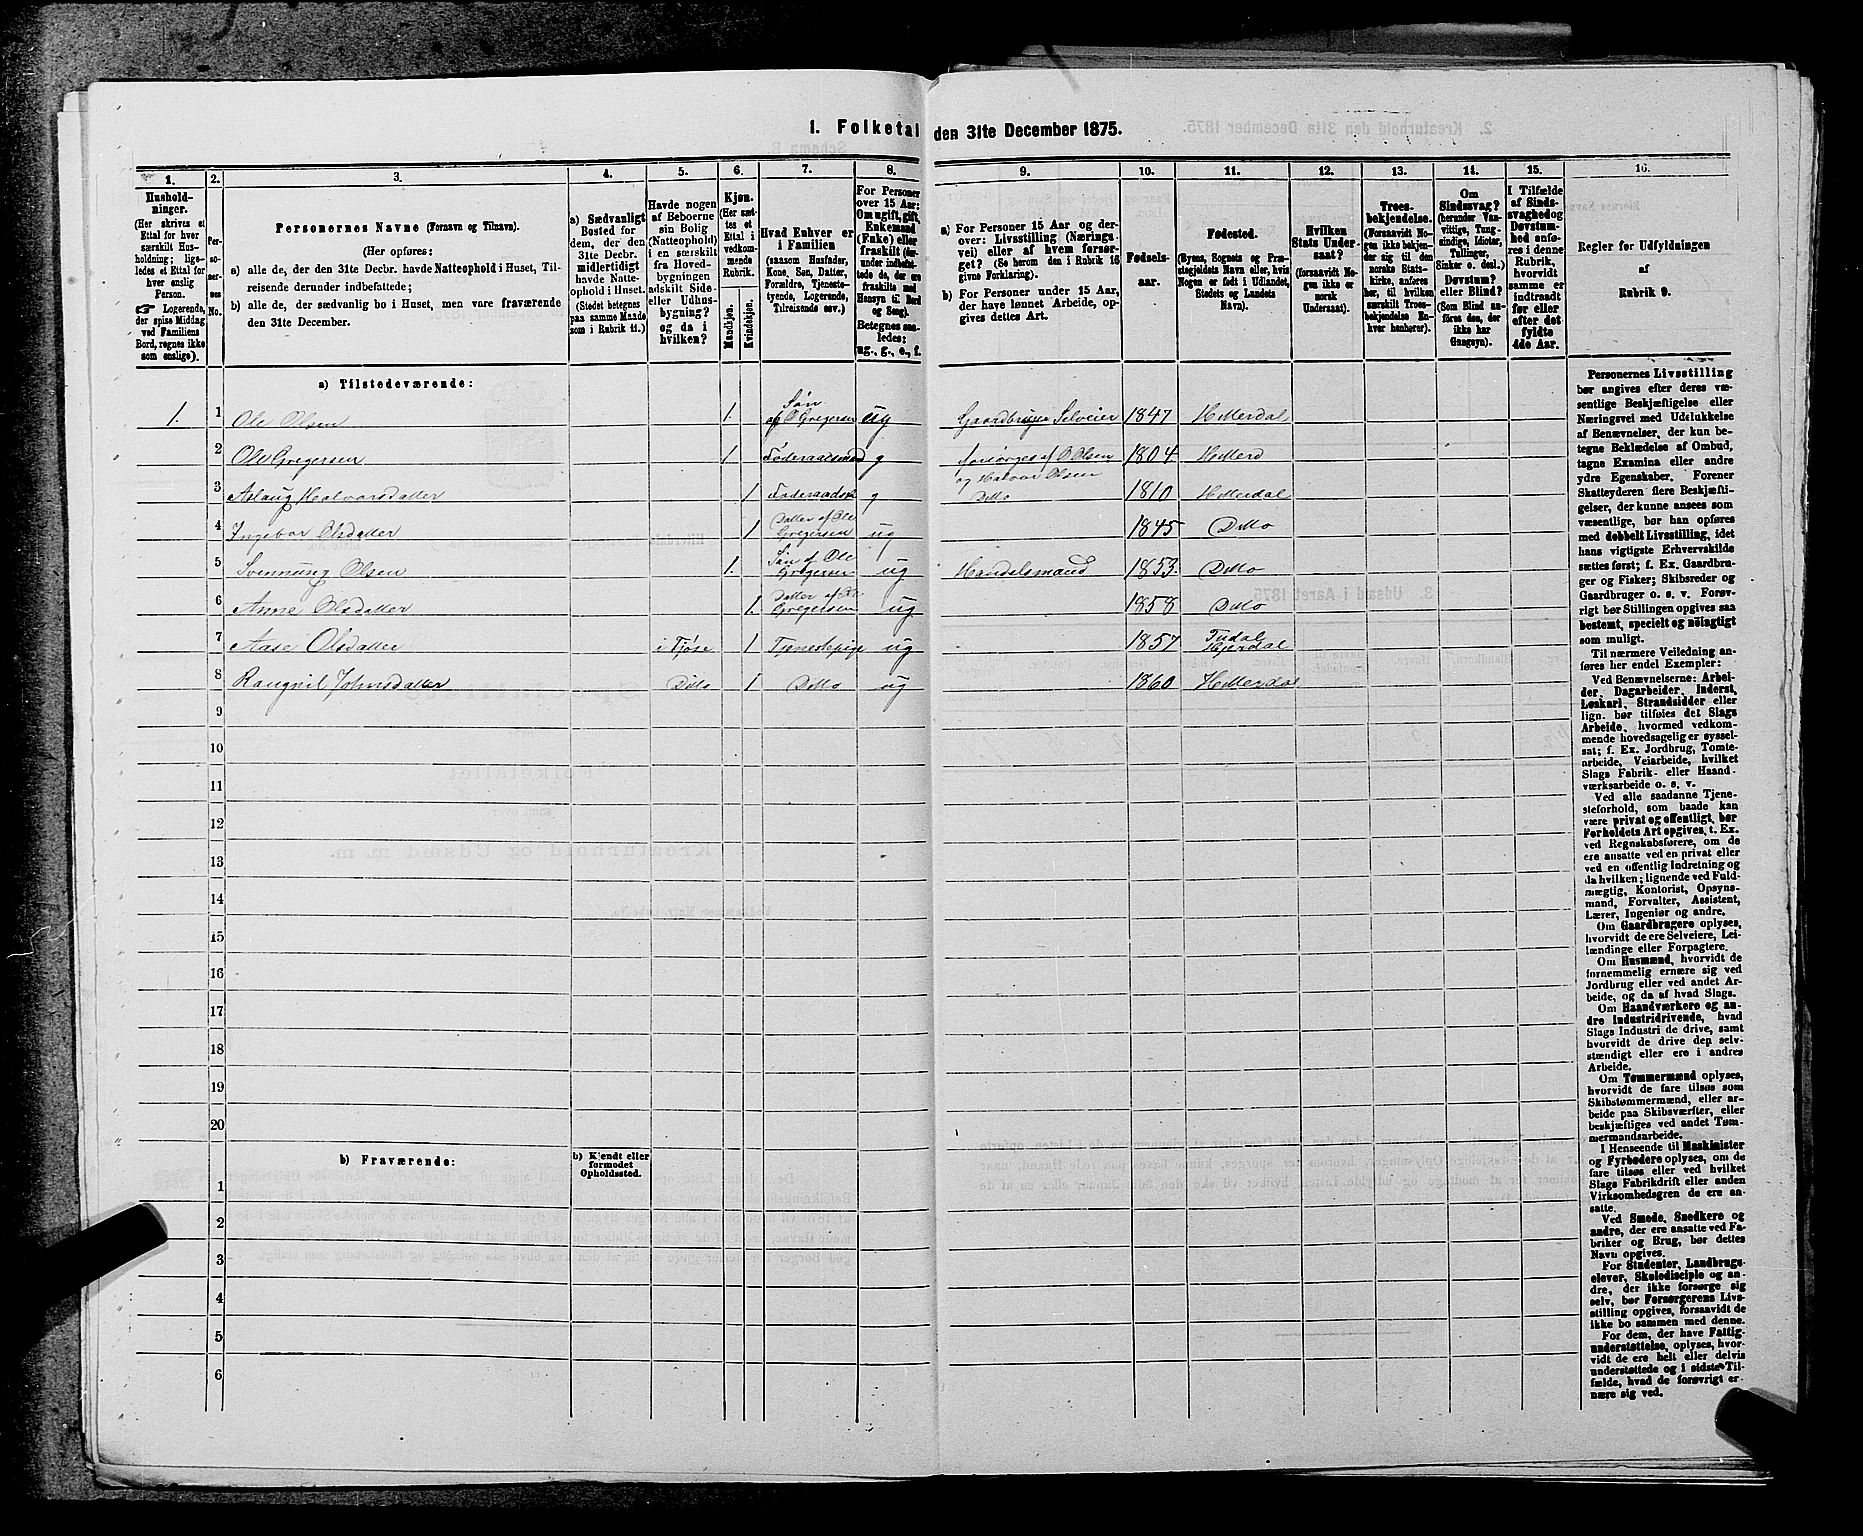 1. Folketal den 31te December 1875.
1.
Hushold-
ninger.
(Her skrives et
Ettal for hver
særskilt Hus-
holdning; lige-
ledes et Ettal for
hver enslig
Person.
☞ Logerende,
der spise Middag
ved Familiens
Bord, regnes ikke
som enslige).
2.
Per-
so-
ner-
nes
No.
3.
Personernes Navne (Fornavn og Tilnavn).
(Her opføres:
a) alle de, der den 31te Decbr. havde Natteophold i Huset, Til-
reisende derunder indbefattede;
b) alle de, der sædvanlig bo i Huset, men vare fraværende
den 31te December.
4.
a) Sædvanligt
Bosted for
dem, der den
31te Decbr.
midlertidigt
havde Natte-
ophold i Huset.
(Stedet betegnes
paa samme Maade
som i Rubrik 11.)
5.
Havde nogen
af Beboerne
sin Bolig
(Natteophold)
i en særskilt
fra Hoved-
bygningen
adskilt Side-
eller Udhus-
bygning?
og da i
hvilken?
6.
Kjøn.
(Her sæt-
tes et
Ettal i
vedkom-
mende
Rubrik.
Mandkjøn.
Kvindekjøn.
7.
Hvad Enhver er
i Familien
(saasom Husfader,
Kone, Søn, Datter,
Forældre, Tjeneste-
tyende, Logerende,
Tilreisende osv.)
8.
For Personer
over 15 Aar:
Om ugift, gift,
Enkemand
(Enke) eller
fraskilt (der-
under indbefat-
tede de, der ere
fraskilte med
Hensyn til Bord
og Seng).
Betegnes saa-
ledes:
ug., g., e., f.
9.
a) For Personer 15 Aar og der-
over: Livsstilling (Nærings-
vei) eller af hvem forsør-
get? (Se herom den i Rubrik 16
givne Forklaring).
b) For Personer under 15 Aar,
der have lønnet Arbeide, op-
gives dettes Art.
10.
Fødsels-
aar.
11.
Fødested.
(Byens, Sognets og Præ-
stegjeldets Navn eller, hvis
Nogen er født i Udlandet,
Stedets og Landets
Navn).
12.
Hvilken
Stats Under-
saat?
(forsaavidt No-
gen ikke er
norsk
Undersaat).
13.
Troes-
bekjendelse.
(Forsaavidt No-
gen ikke bekjen-
der sig til den
norske Stats-
kirke, anføres
her, til hvilken
særskilt Troes-
bekjendelse En-
hver henhører).
14.
Om
Sindssvag?
(herunder Van-
vittige, Tung-
sindige, Idioter,
Tullinger,
Sinker o. desl.)
Døvstum?
eller Blind?
(Som Blind an-
føres den, der
ikke har
Gangsyn).
15.
I Tilfælde
af Sinds-
svaghed og
Døvstum-
hed anfø-
res i denne
Rubrik,
hvorvidt
samme er
indtraadt
før eller
efter det
fyldte
4de Aar.
16.
Regler for Udfyldningen
af
Rubrik 9.
a) Tilstedeværende:
1. 1 Ole Olsen 1. Søn af O Gregersen ug Gaardbruger Selveier 1847 Hitterdal
2 Ole Gregersen 1 Føderaadsmand g forsørges af O Olsen og Halvor Olsen 1804 Hitterd
3 Aslaug Halvorsdatter 1 Føderaadsk g Ditto 1810 Hitterdal
4 Ingebor Olsdatter 1 Datter af Ole Gregersen ug 1845 Ditto
5 Svennung Olsen 1. Søn af Ole Gregersen ug Handelsmand 1853. Ditto
6 Anne Olsdatter 1. Datter af Ole Gregersen ug 1858 Ditto
7 Aase Olsdatter i Fjøse 1 Tjenestepige ug 1857 Tudal Hjerdal
8 Rangnil Johnsdatter Ditto 1 Ditto ug 1860 Hitterdal
9
10
11
12
13
14
15
16
17
18
19
20
b) Fraværende:
b) Kjendt eller
formodet
Opholdssted.
1
2
3
4
5
6
Personernes Livsstilling
bør angives efter deres væ-
sentlige Beskjæftigelse eller
Næringsvei med Udelukkelse
af Benævnelser, der kun be-
tegne Beklædelse af Ombud,
tagne Examina eller andre
ydre Egenskaber. Forener
Skatteyderen flere Beskjæfti-
gelser, der kunne ansees som
væsentlige, bør han opføres
med dobbelt Livsstilling, idet
hans vigtigste Erhvervskilde
sættes først; f. Ex. Gaardbru-
ger og Fisker; Skibsreder og
Gaardbruger o. s. v. Forøv-
rigt bør Stillingen opgives saa
bestemt, specielt og nøiagtigt
som muligt.
Til nærmere Veiledning an-
føres her endel Exempler:
Ved Benævnelserne: Arbei-
der, Dagarbeider, Inderst,
Løskarl, Strandsidder eller
lign. bør tilføies det Slags
Arbeide, hvormed vedkom-
mende hovedsagelig er syssel-
sat; f. Ex. Jordbrug, Tomte-
arbeide, Veiarbeide, hvilket
Slags Fabrik- eller Haand-
værksarbeide o. s. v.
Ved alle saadanne Tjene-
steforhold, som baade kan
være privat og offentligt, bør
Forholdets Art opgives, t. Ex.
ved Regnskabsførere, om de
ere ansatte ved en privat eller
ved en offentlig Indretning og
da hvilken; lignende ved Fuld-
mægtig, Kontorist, Opsyns-
mand, Forvalter, Assistent,
Lærer, Ingeniør og andre.
Om Gaardbrugere oplyses,
hvorvidt de ere Selveiere, Lei-
lændinge eller Forpagtere.
Om Husmænd, hvorvidt de
fornemmelig ernære sig ved
Jordbrug eller ved andet Ar-
beide, og da af hvad Slags.
Om Haandværkere og an-
dre Industridrivende, hvad
Slags Industri de drive, samt
hvorvidt de drive den selv-
stændigt eller ere i andres
Arbeide.
Om Tømmermænd oplyses,
hvorvidt de fare tilsøs som
Skibstømmermænd, eller ar-
beide paa Skibsværfter, eller
beskjæftiges ved andet Tøm-
mermandsarbeide.
I Henseende til Maskinister
og Fyrbødere oplyses, om de
fare tilsøs eller ved hvilket
Slags Fabrikdrift eller anden
Virksomhedsgren de ere an-
satte.
Ved Smede, Snedkere og
andre, der ere ansatte ved Fa-
briker og Brug, bør dettes
Navn opgives.
For Studenter, Landbrugs-
elever, Skoledisciple og an-
dre, der ikke forsørge sig
selv, bør Forsørgerens Livs-
stilling opgives, forsaavidt de
ikke bo sammen med denne.
For dem, der have Fattig-
understøttelse, oplyses, hvor-
vidt de ere helt eller delvis
understøttede og i sidste Til-
fælde, hvad de forøvrigt er-
nære sig ved.